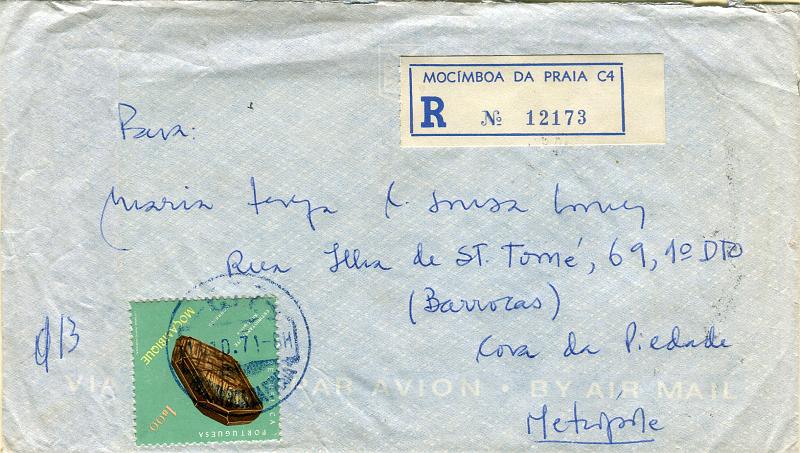 MOCÍMBOA DA PRAIA C4
R Nº 12173
Para:
Maria Teresa C. Sousa
Rua Ilha de ST. Tomé, 69, 1º DTO
(Barrocas)
Cova da Piedade
Metrópole
MOÇAMBIQUE
PORTUGUESA
1$00
.71-
VIA PAR AVION • BY AIR MAIL